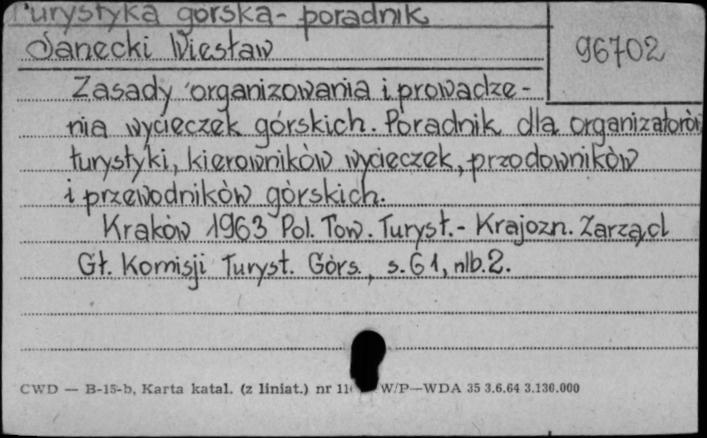 Turystyka górska - poradnik
Sanecki Wiesław
96702
Zasady organizowania i prowadze-
nia wycieczek górskich. Poradnik dla organizatorów
turystyki, kierowników wycieczek, przodowników
i przewodników górskich.
Kraków 1963 Pol. Tow. Turyst.- Krajozn. Zarząd
Gł. Komisji Turyst. Górs., s. 61, nlb. 2.
CWD — B-15-b, Karta katal. (z liniat.) nr 11 W/P—WDA 35 3.6.64 3.130.000